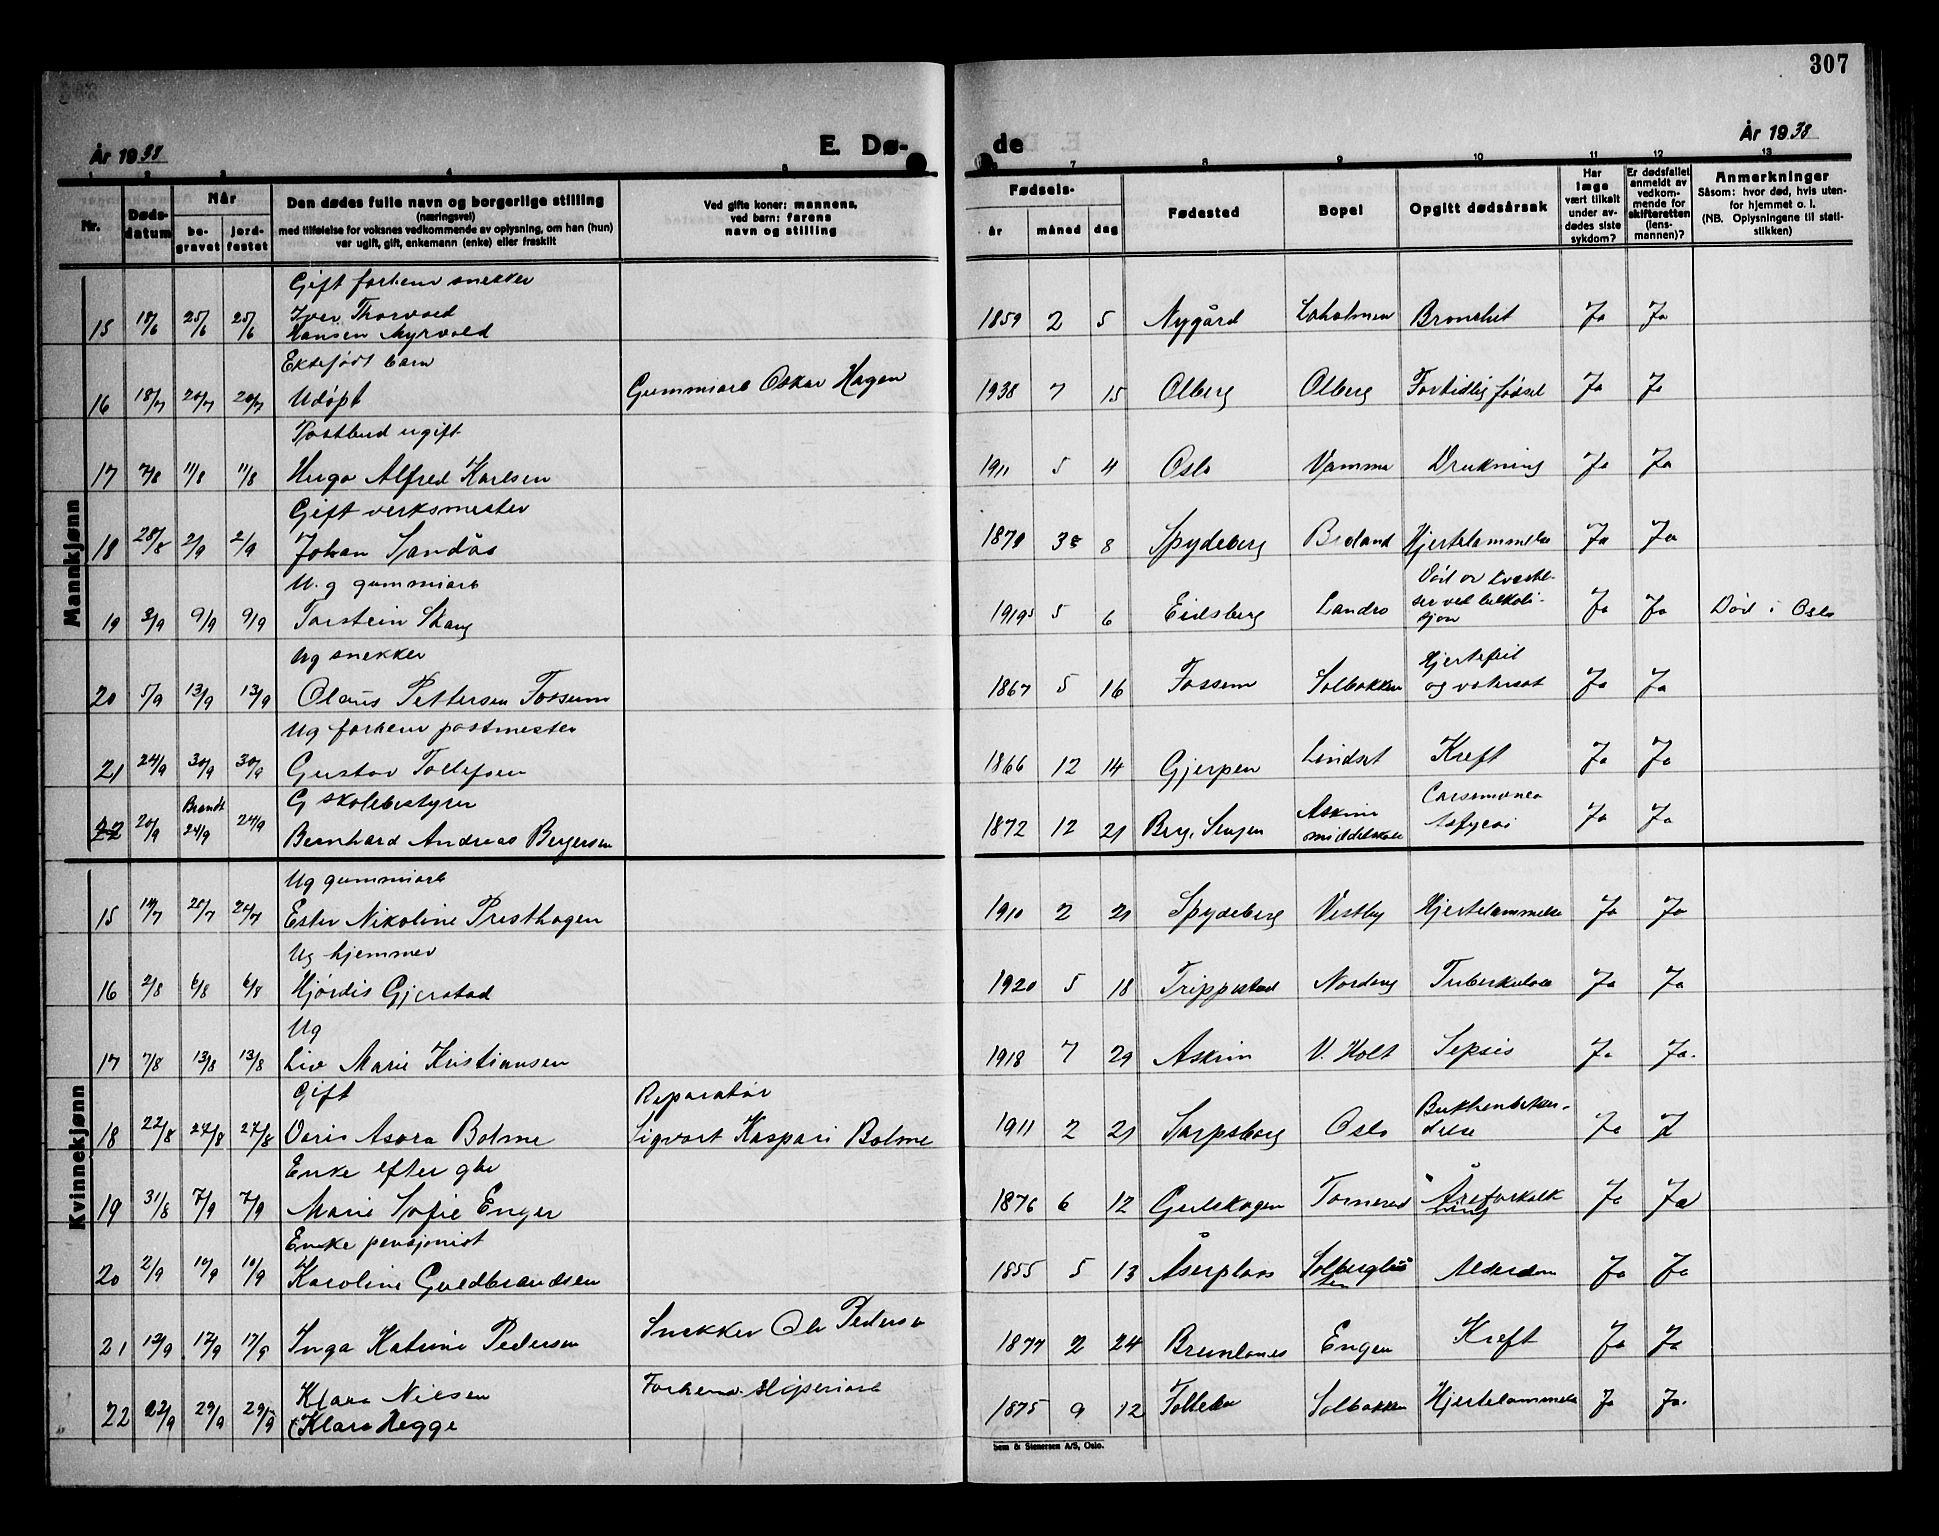 307
År 1938
E. Dø-
de
År 1938
1 2 3 4 5 7 8 9 10 11 12 13
Nr.
Døds-
datum
Når
be-
gravet
jord-
festet
Den dødes fulle navn og borgerlige stilling
(næringsvei)
med tilføielse for voksnes vedkommende av oplysning, om han (hun)
var ugift, gift, enkemann (enke) eller fraskilt
Ved gifte koner: mannens,
ved barn: farens
navn og stilling
Fødsels-
år måned dag
Fødested
Bopel
Opgitt dødsårsak
Har
læge
vært tilkalt
under av-
dødes siste
sykdom?
Er dødsfallet
anmeldt av
vedkom-
mende for
skifteretten
(lens-
mannen)?
Anmerkninger
Såsom: hvor død, hvis uten-
for hjemmet o. l.
(NB. Oplysningene til stati-
stikken)
Mannkjønn
Gift forhenv snekker
Iver Thorvald
15 18/6 25/6 25/6 Hansen Myrvold 1859 2 5 Nygård Løkholmen Bronchit Ja Ja
Ektefødt barn
16 18/7 20/7 20/7 Udøpt Gummiarb Oskar Hagen 1938 7 15 Olberg Olberg Fortidlig fødsel Ja Ja
Postbud ugift
17 7/8 11/8 11/8 Hugo Alfred Karlsen 1911 5 4 Oslo Vamma Drukning Ja Ja
Gift verksmester
18 28/8 2/9 2/9 Johan Sandås 1879 3 8 Spydeberg Breland Hjertelammelse Ja Ja
U.g gummiarb
19 3/9 9/9 9/9 Torstein Skaug 1919 5 6 Eidsberg Landro Død av kvestel-
ser ved bilkoli-
sjon Ja Ja Død i Oslo
Ug snekker
20 5/9 13/9 13/9 Olaus Pettersen Fossum 1867 5 16 Fossum Solbakken Hjertefeil
og vatersot Ja Ja
Ug forhenv postmester
21 24/9 30/9 30/9 Gustav Tollefsen 1866 12 14 Gjerpen Lindset Kreft Ja Ja
G skolebestyrer
22 20/9 Brendt 24/9 24/9 Bernhard Andreas Bergersen 1872 12 21 Berg, Senjen Askim
middelskole Ja Ja
Kvinnekjønn
Ug gummiarb
15 20/7 20/7 Ester Nikoline Presthagen 1910 2 21 Spydeberg Vestby Hjertelammelse Ja Ja
Ug hjemmev
16 2/8 6/8 6/8 Hjørdis Gjerstad 1920 5 18 Trippestad Nordeng Tuberkulose Ja Ja
Ug
17 7/8 13/8 13/8 Liv Marie Kristiansen 1918 7 29 Askim V. Holt Sepsis Ja Ja.
Gift Reparatør
18 22/8 27/8 27/8 Doris Asora Bolme Sigvart Kaspari Bolme 1911 2 21 Sarpsborg Oslo Bukhinnebeten-
delse Ja J
Enke efter gbr
19 31/8 7/9 7/9 Marie Sofie Enger 1876 6 12 Gulskogen Tomerud Åreforkalk
ning Ja Ja
Enke pensjonist
20 2/9 10/9 10/9 Karoline Guldbrandsen 1855 5 13 Åserplass Alderdom Ja Ja
21 12/9 17/9 17/9 Inga Katrine Pedersen Snekker Ole Pedersen 1877 2 24 Brunlanes Engen Kreft Ja Ja
Klara Nilsen Forhenv. sliperiarb
22 22/9 29/9 29/9 (Klara Hegge 1875 9 12 Solbakken Hjertelammelse Ja Ja.
Sem & Stenersen A/S, Oslo.